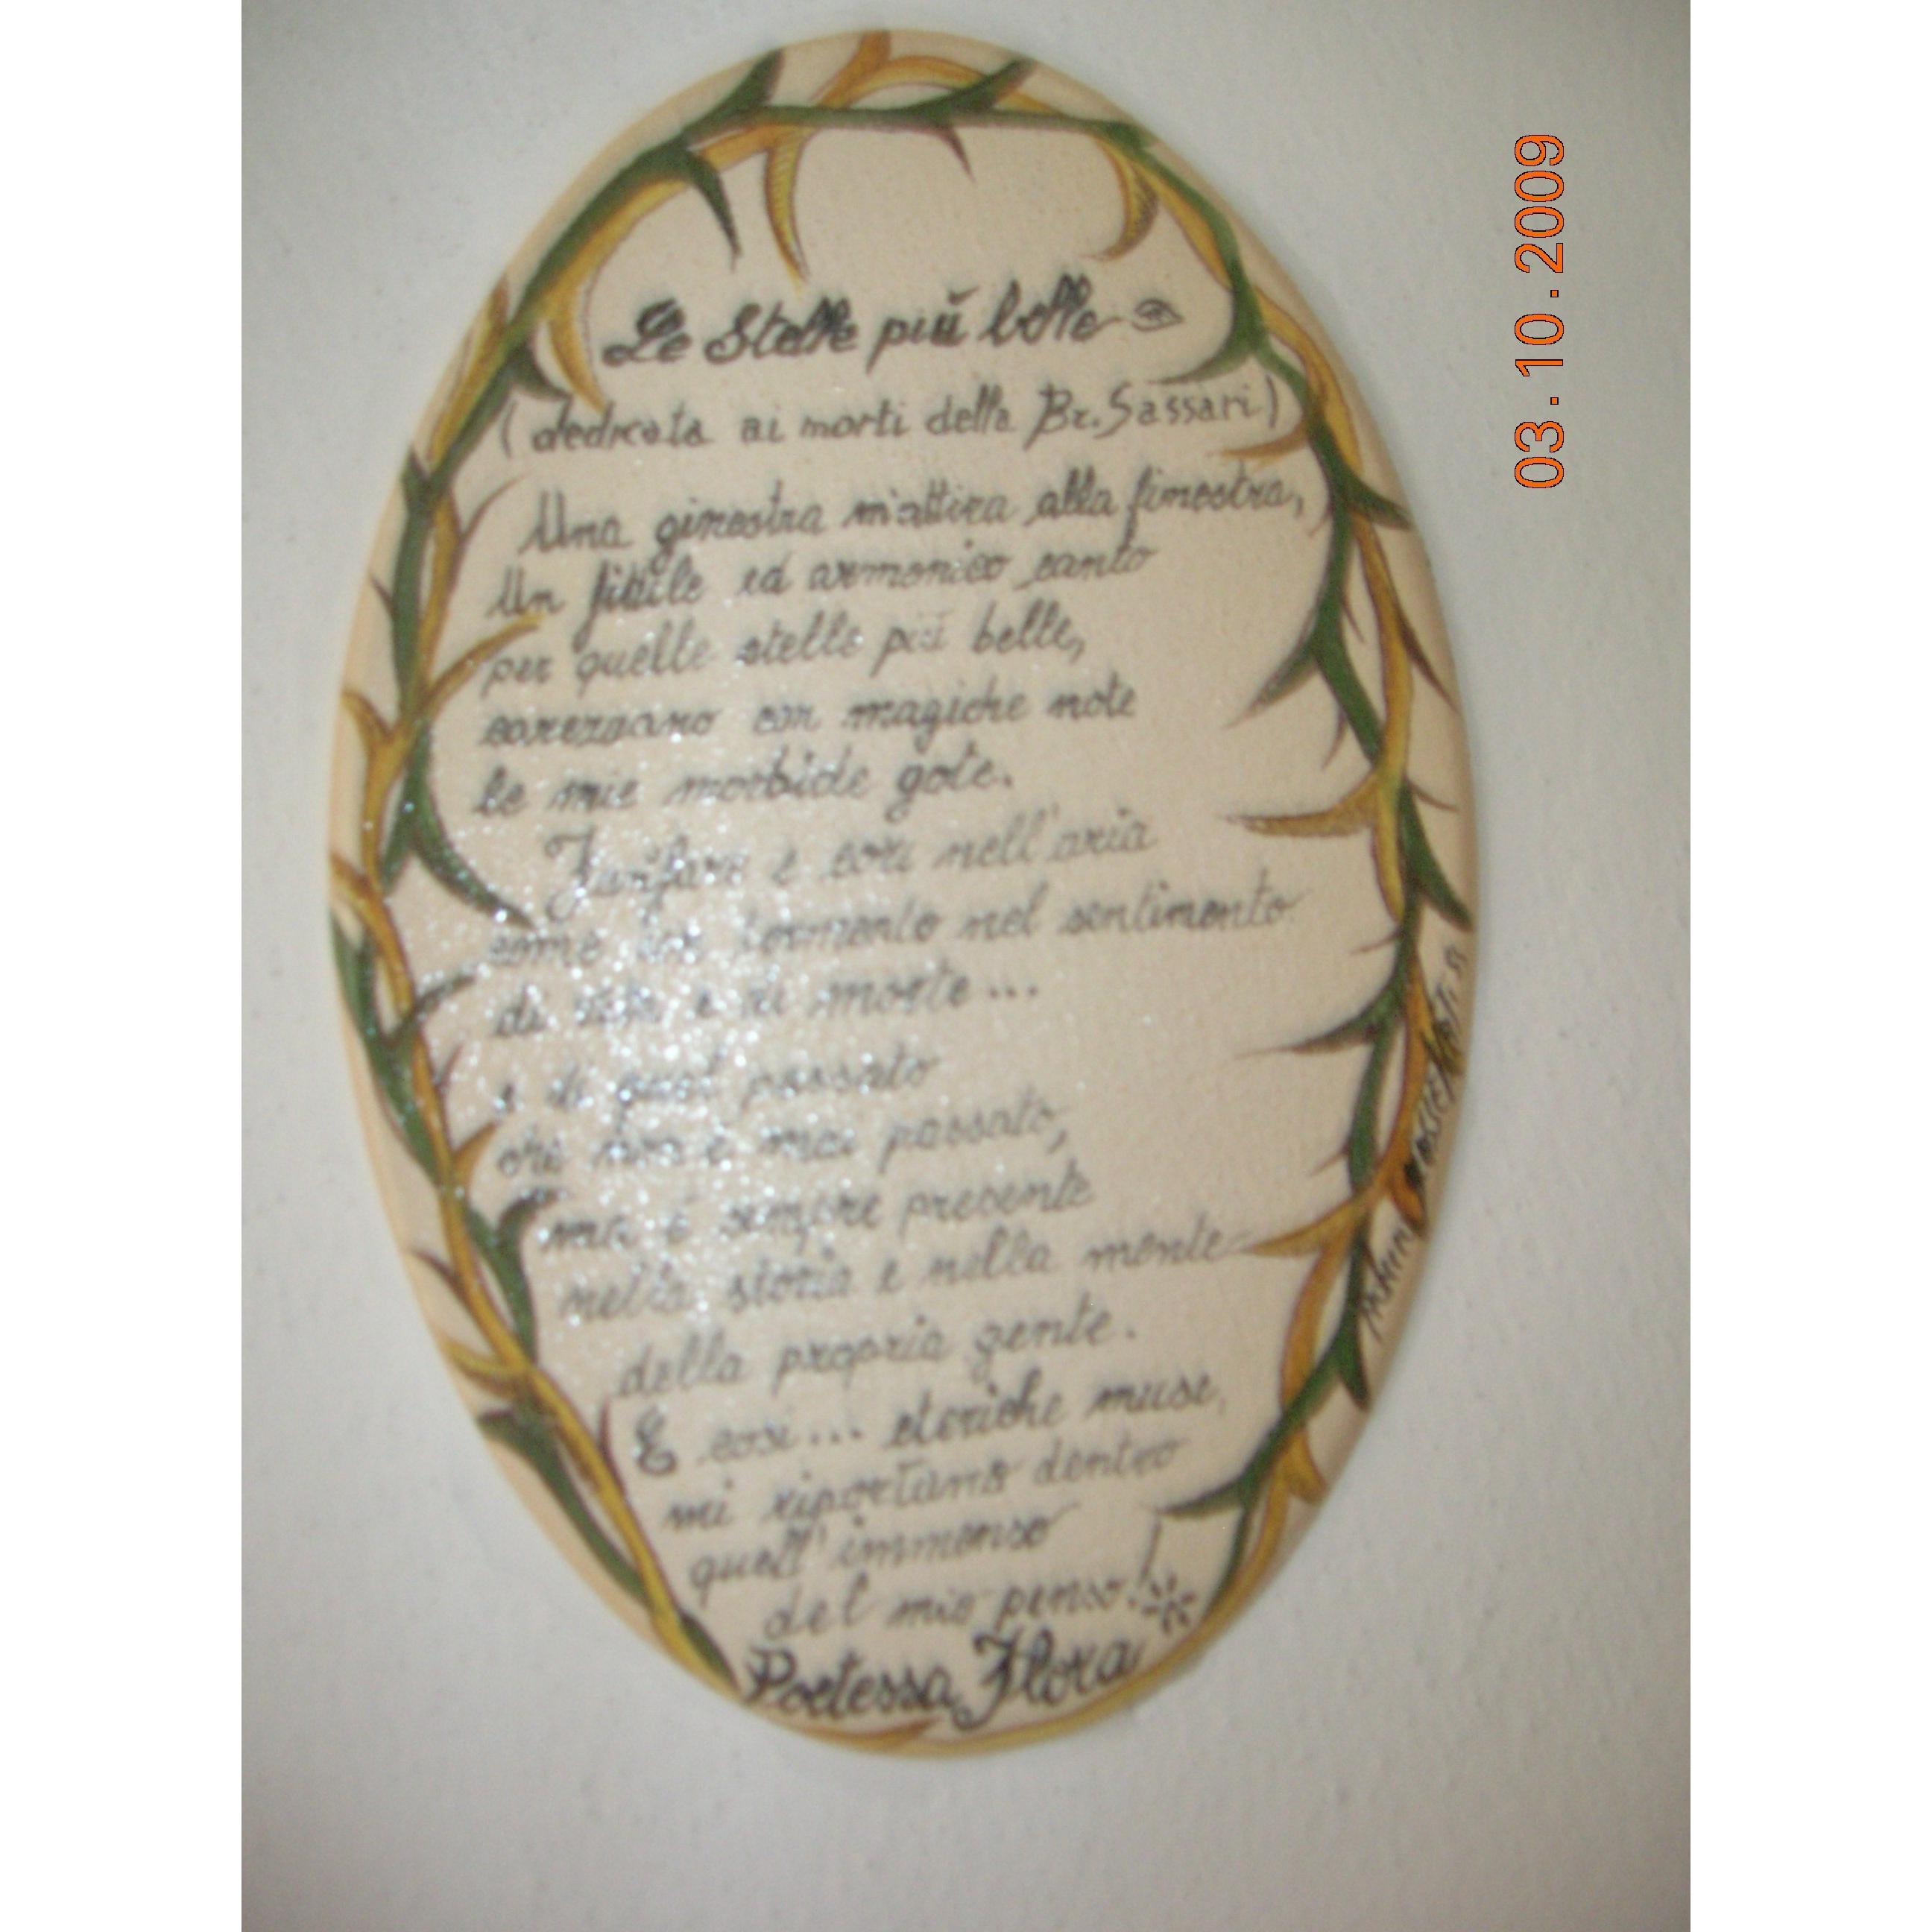 Le Stelle più belle
(dedicata ai morti della Br. Sassari)
Una ginestra m'attira alla finestra,
Un fitile ed armonico canto
per quelle stelle più belle,
carezzano con magiche note
le mie morbide gote.
Fanfare e cori nell'aria
come tormento nel sentimento
di vita e di morte...
e di quel passato
che non è mai passato,
ma è sempre presente
nella storia e nella mente
della propria gente.
E così... eteriche muse,
mi riportano dentro
quell'immenso
del mio penso!
Poetessa Flora
03.10.2009